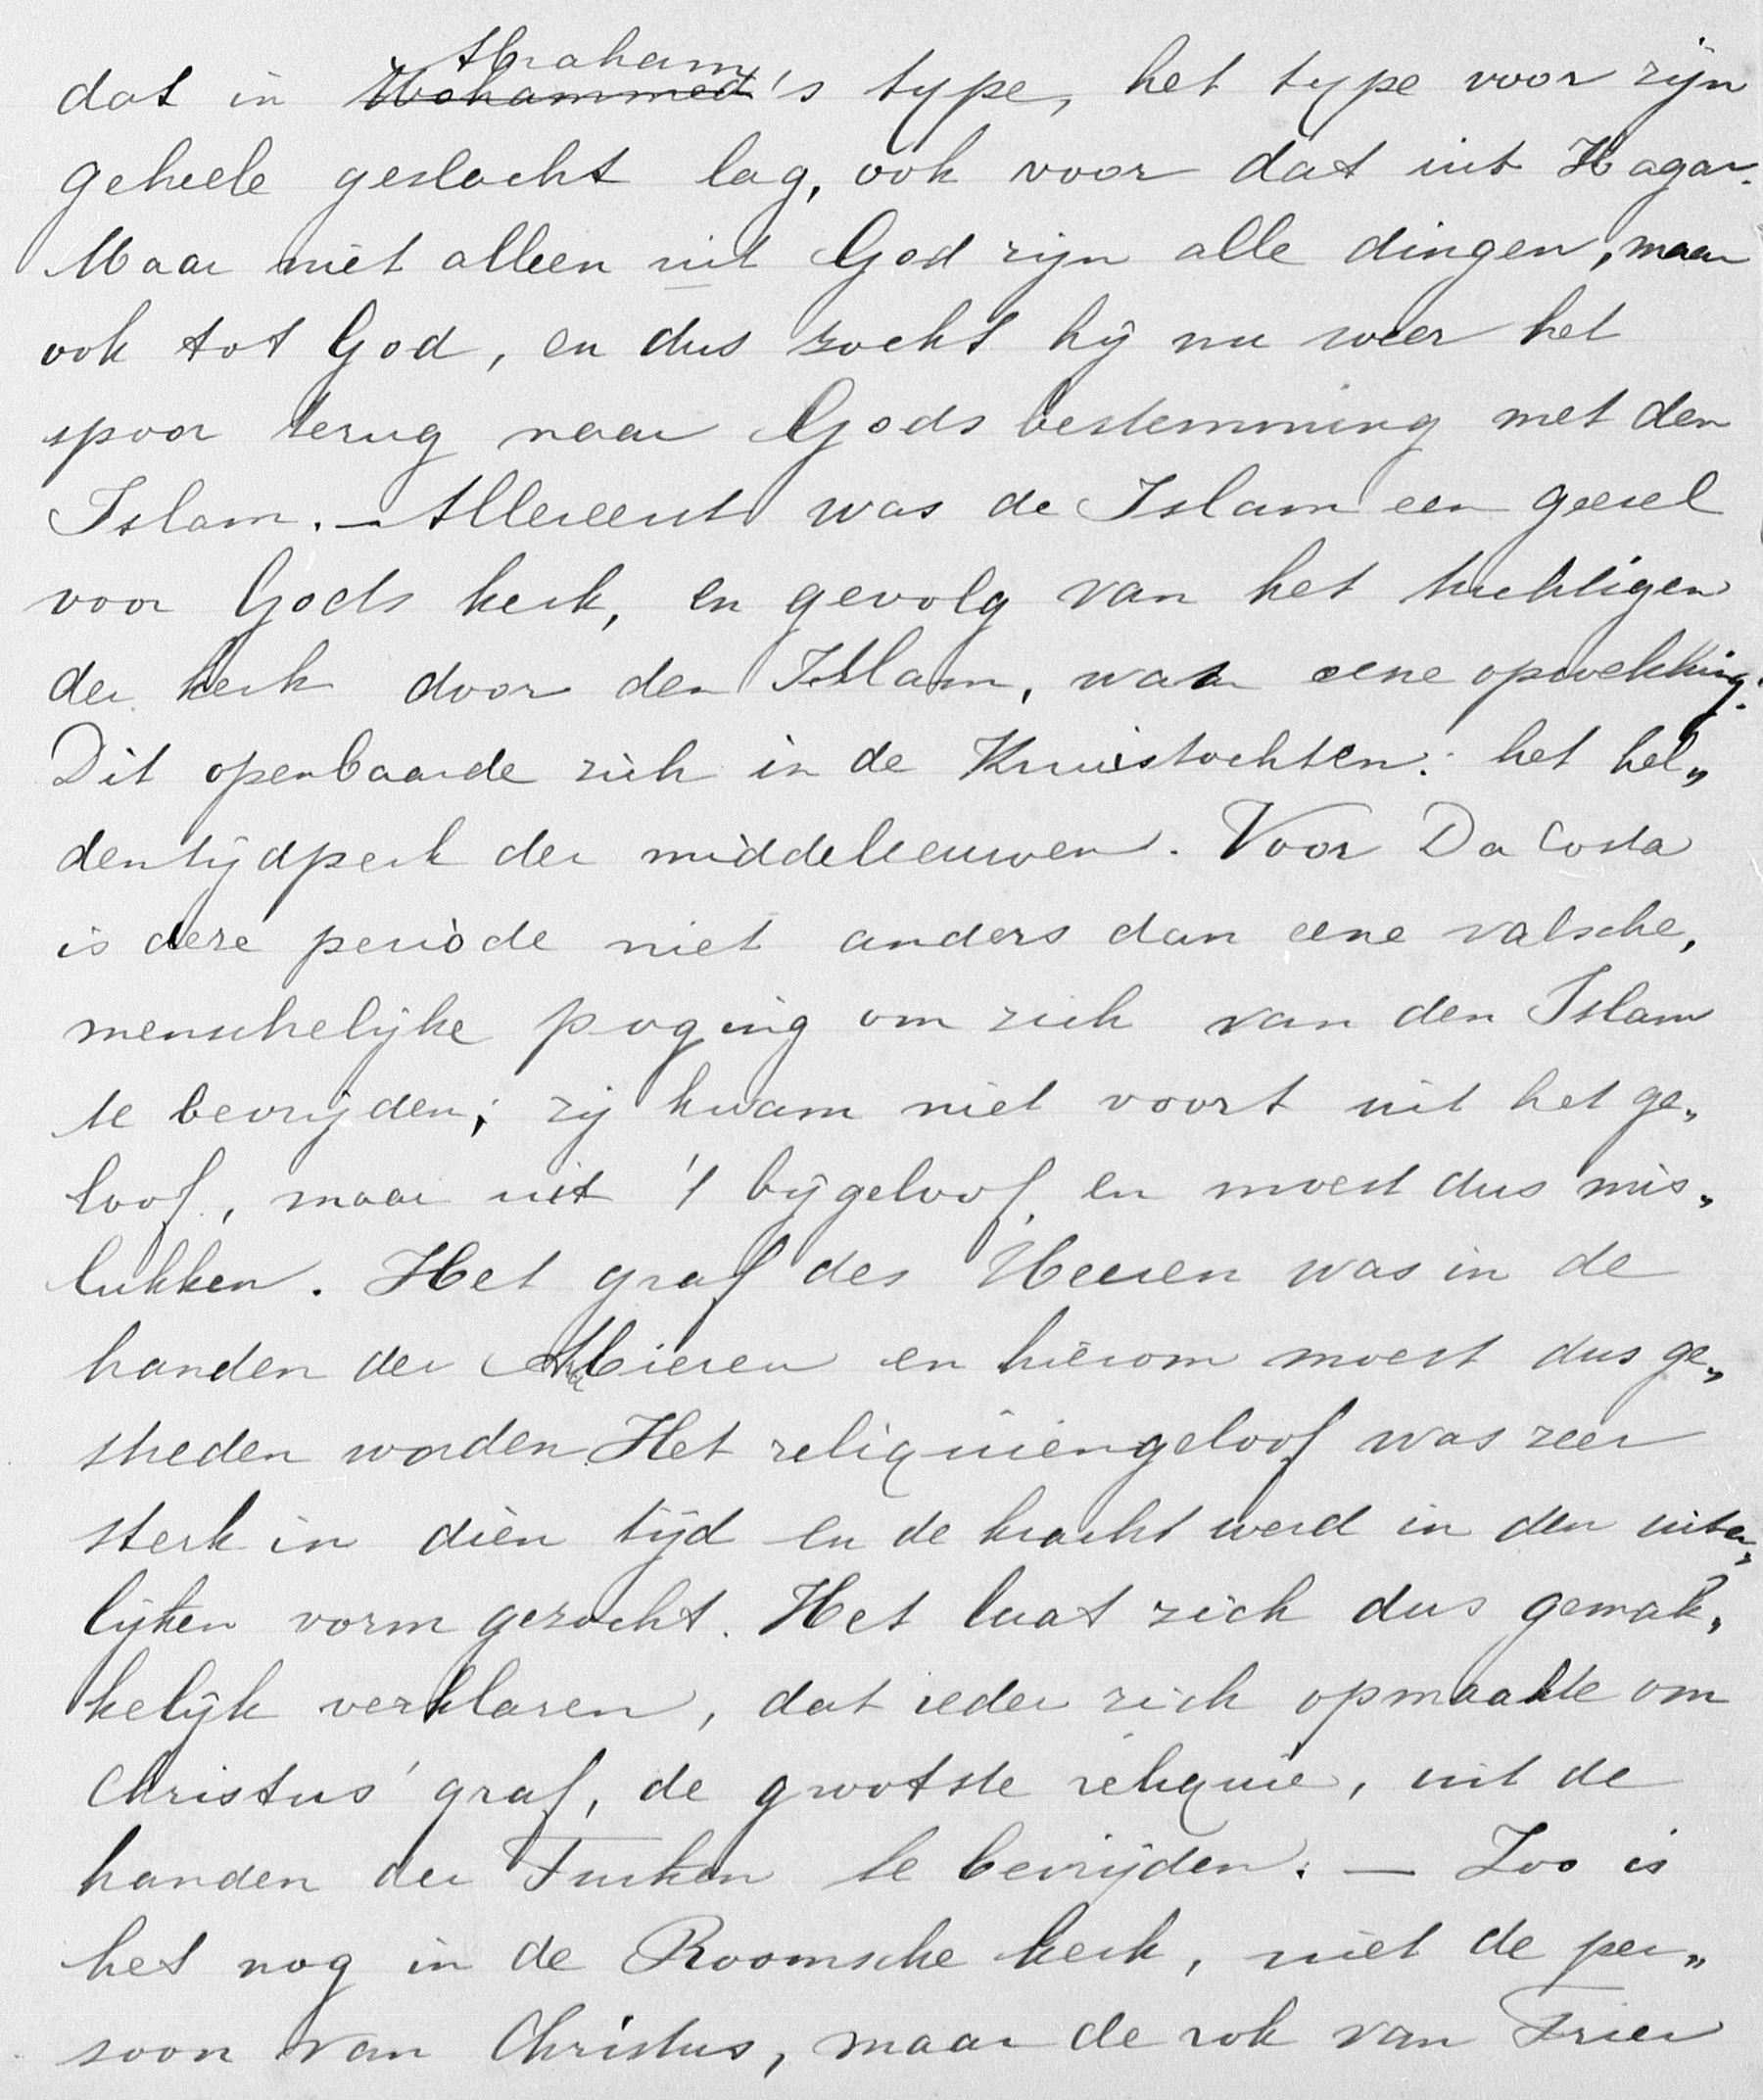 dat in Abraham's type, het type voor zijn
geheele geslacht lag, ook voor dat uit Hagar.
Maar niet alleen uit God zijn alle dingen, maar
ook tot God, en dus zocht hij nu weer het
spoor terug naar Gods bestemming met den
Islam. – Allereerst was de Islam een geesel
voor Gods kerk, en gevolg van het tuchtigen
der kerk door den Islam, was eene opwekking.
Dit openbaarde zich in de Kruistochten: het hel„
dentijdperk der middeleeuwen. Voor Da Costa
is deze periode niet anders dan eene valsche,
menschelijke poging om zich van den Islam
te bevrijden; zij kwam niet voort uit het ge„
loof, maar uit 't bijgeloof, en moest dus mis„
lukken. Het graf des Heeren was in de
handen der Arabieren en hierom moest dus ge„
streden worden. Het reliquiëngeloof was zeer
sterk in dien tijd en de kracht werd in den uiter„
lijken vorm gezocht. Het laat zich dus gemak„
kelijk verklaren, dat ieder zich opmaakte om
Christus' graf, de grootste reliquie, uit de
handen der Turken te bevrijden. – Zoo is
het nog in de Roomsche kerk, niet de per„
soon van Christus, maar de rok van Trier